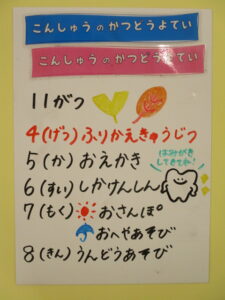 こんしゅうのかつどうよてい
こんしゅうのかつどうよてい
11がつ
4(げつ)ふりかえきゅうじつ
5(か)おえかき
はみがき
してきてね!
6(すい)しかけんしん
7(もく)おさんぽ。
おへやあそび
8(きん)うんどうあそび